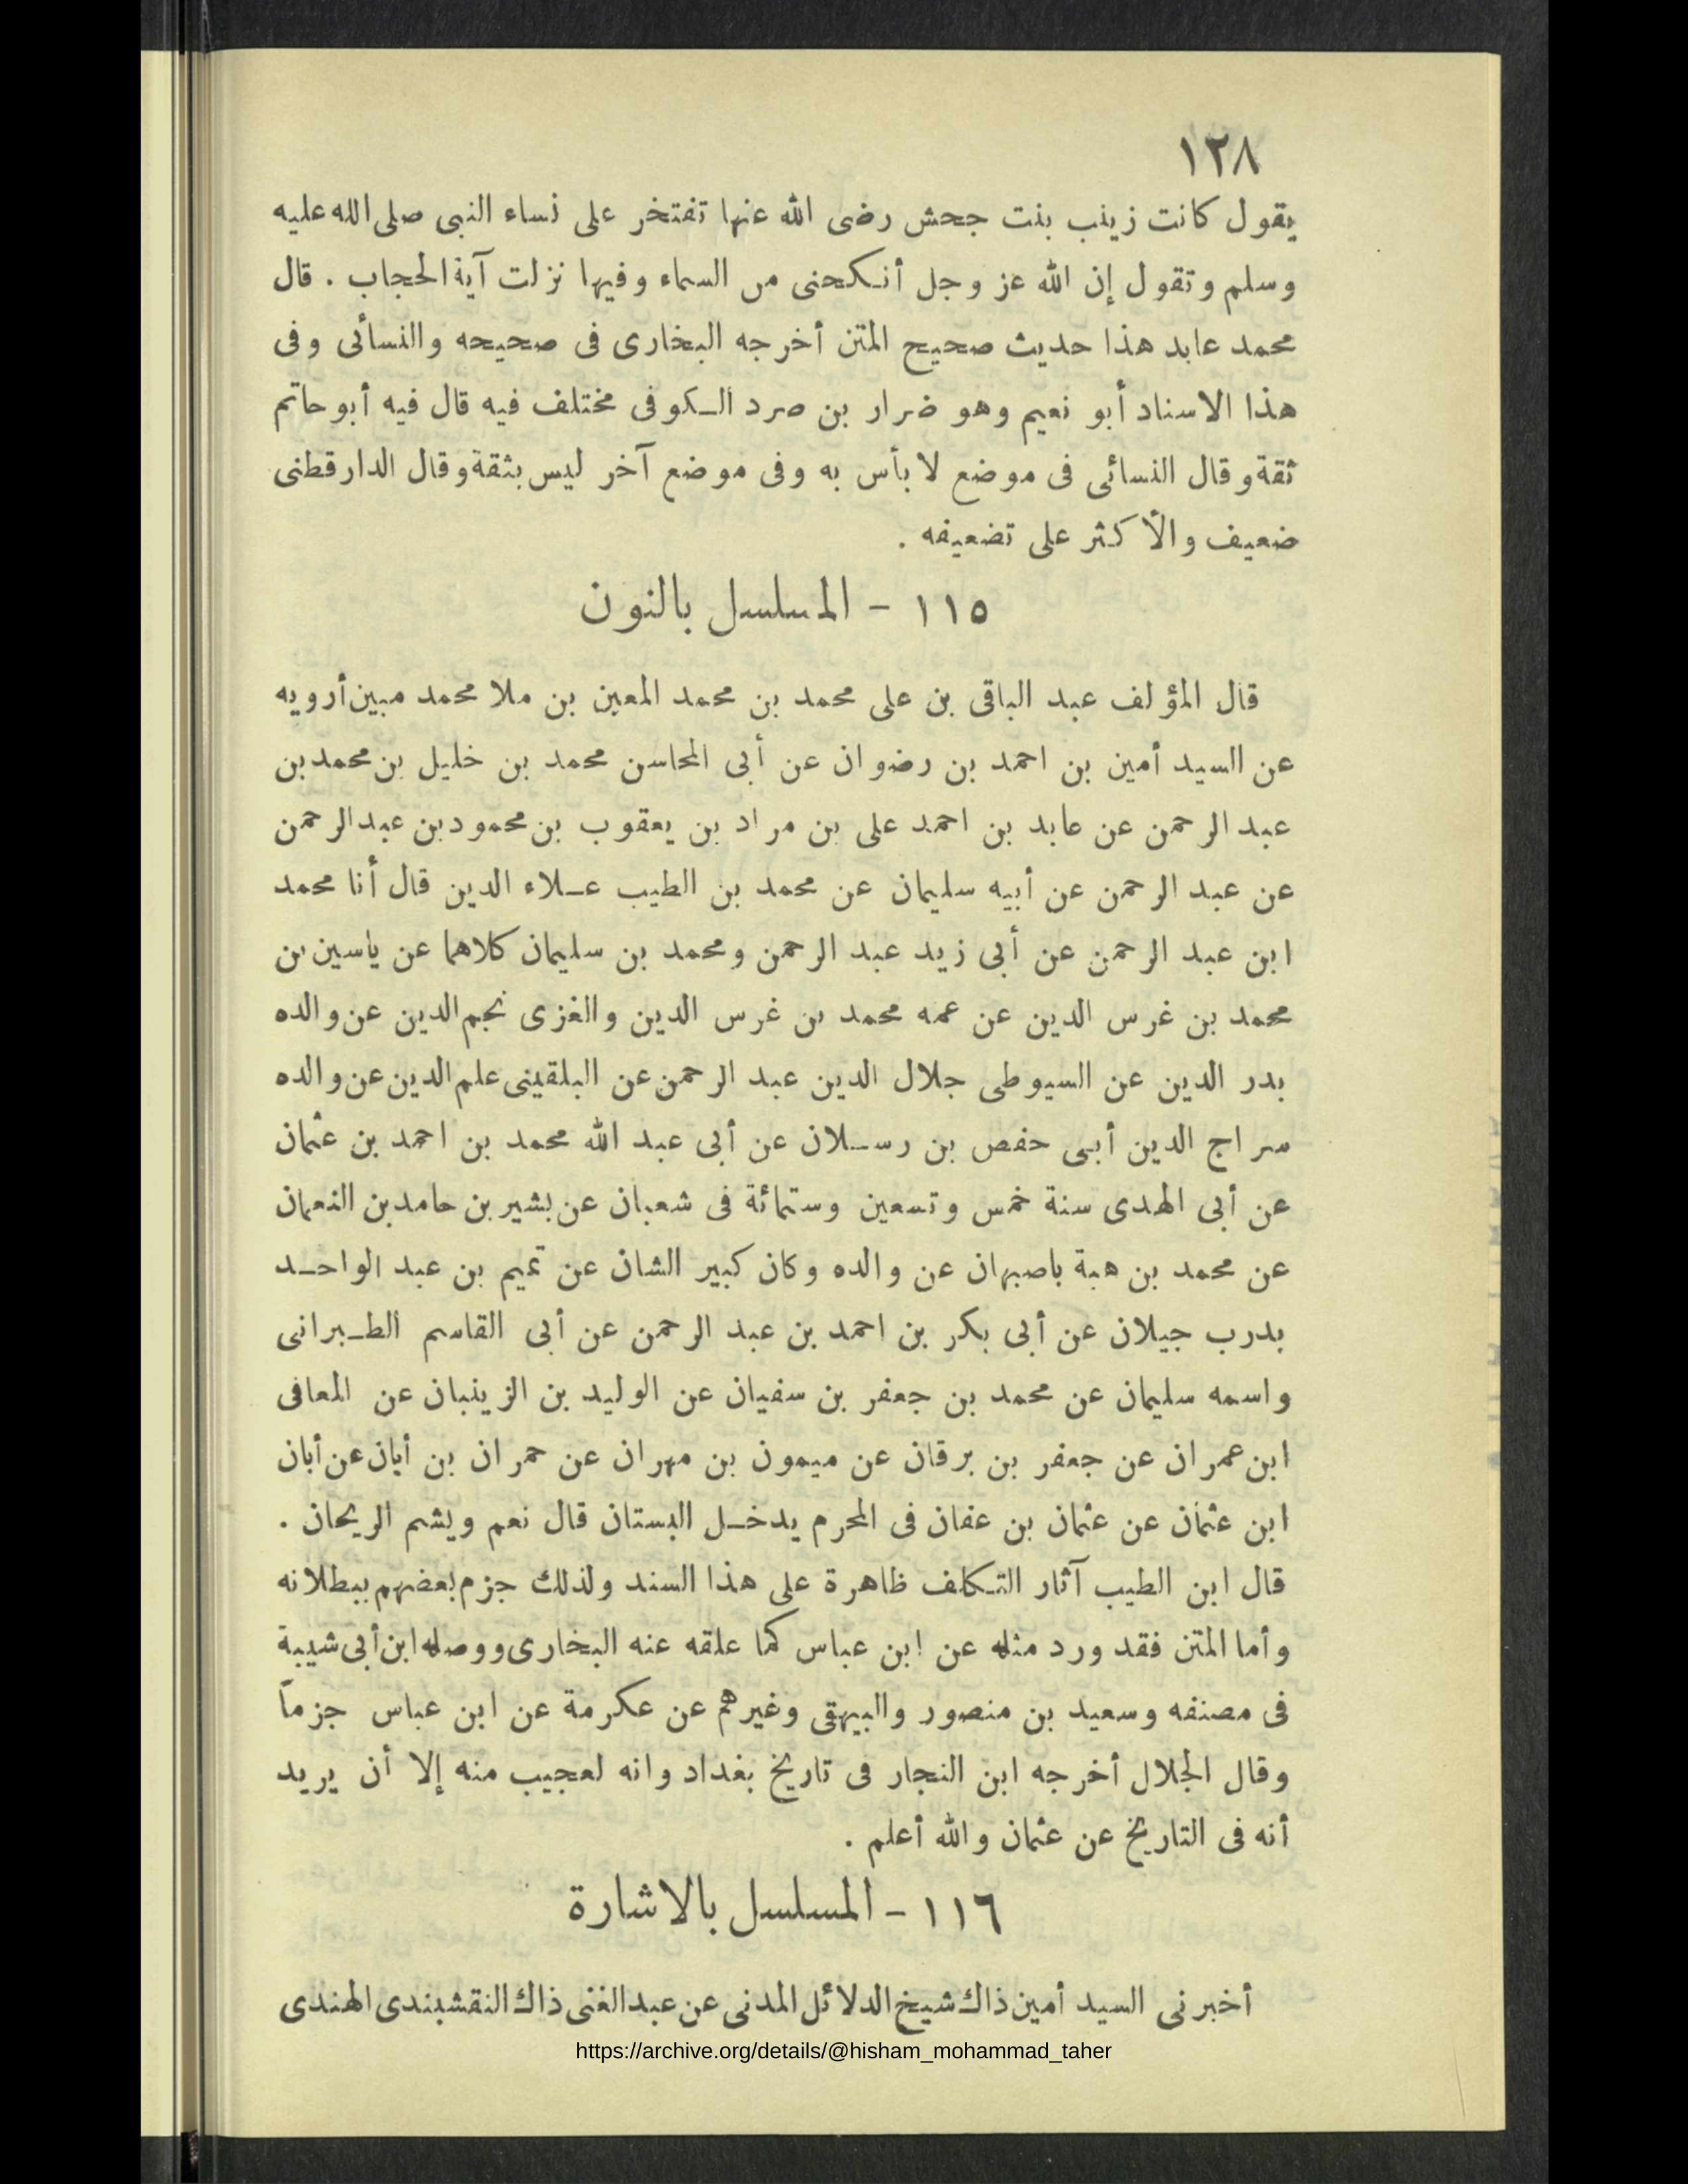 ١٢٨
يقول كانت زينب بنت جحش رضى الله عنها تفتخر على نساء النبى صلى الله عليه
وسلم وتقول إن الله عز وجل أنكحنى من السماء وفيها نزلت آية الحجاب . قال
محمد عابد هذا حديث صحيح المتن أخرجه البخارى فى صحيحه والنسأئى وفى
هذا الاسناد أبو نعيم وهو ضرار بن صرد الكوفى مختلف فيه قال فيه أبو حاتم
ثقة وقال النسائى فى موضع لا بأس به وفى موضع آخر ليس بثقة وقال الدارقطنى
ضعيف والأكثر على تضعيفه .
١١٥ - المسلسل بالنون
قال المؤلف عبد الباقى بن على محمد بن محمد المعين بن ملا محمد مبين أرويه
عن السيد أمين بن احمد بن رضوان عن أبى المحاسن محمد بن خليل بن محمد بن
عبد الرحمن عن عابد بن احمد على بن مراد بن يعقوب بن محمود بن عبد الرحمن
عن عبد الرحمن عن أبيه سليمان عن محمد بن الطيب علاء الدين قال أنا محمد
ابن عبد الرحمن عن أبى زيد عبد الرحمن ومحمد بن سليمان كلاهما عن ياسين بن
محمد بن غرس الدين عن عمه محمد بن غرس الدين والغزى نجم الدين عن والده
بدر الدين عن السيوطى جلال الدين عبد الرحمن عن البلقينى علم الدين عن والده
سراج الدين أبى حفص بن رسلان عن أبى عبد الله محمد بن احمد بن عثمان
عن أبى الهدى سنة خمس وتسعين وستمائة فى شعبان عن بشير بن حامد بن النعمان
عن محمد بن هبة باصبهان عن والده وكان كبير الشان عن تميم بن عبد الواحد
بدرب جيلان عن أبى بكر بن احمد بن عبد الرحمن عن أبى القاسم الطبرانى
واسمه سليمان عن محمد بن جعفر بن سفيان عن الوليد بن الزينبان عن المعافى
ابن عمران عن جعفر بن برقان عن ميمون بن مهران عن حمران بن أبان عن أبان
ابن عثمان عن عثمان بن عفان فى المحرم يدخل البستان قال نعم ويشم الريحان .
قال ابن الطيب آثار التكلف ظاهرة على هذا السند ولذلك جزم بعضهم ببطلانه
وأما المتن فقد ورد مثله عن ابن عباس كما علقه عنه البخارى ووصله ابن أبى شيبة
فى مصنفه وسعيد بن منصور والبيهقى وغيرهم عن عكرمة عن ابن عباس جزماً
وقال الجلال أخرجه ابن النجار فى تاريخ بغداد وانه لعجيب منه إلا أن يريد
أنه فى التاريخ عن عثمان والله أعلم .
١١٦ - المسلسل بالاشارة
أخبرنى السيد أمين ذاك شيخ الدلائل المدنى عن عبد الغنى ذاك النقشبندى الهندى
https://archive.org/details/@hisham_mohammad_taher